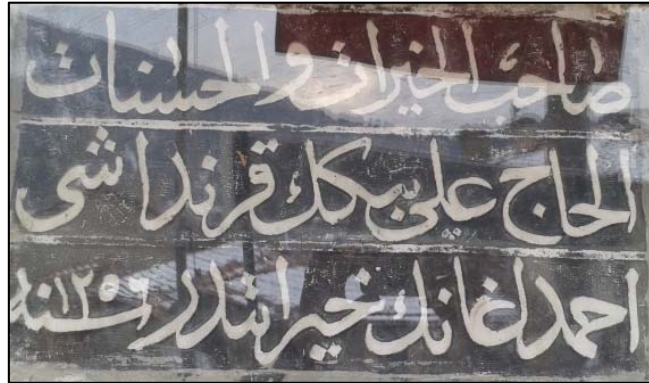 صاحب الخيرات والحسنات
الحاج على بيكك قرنداشى
احمد اغانك خيراتيدر سنه ١٢٥٦